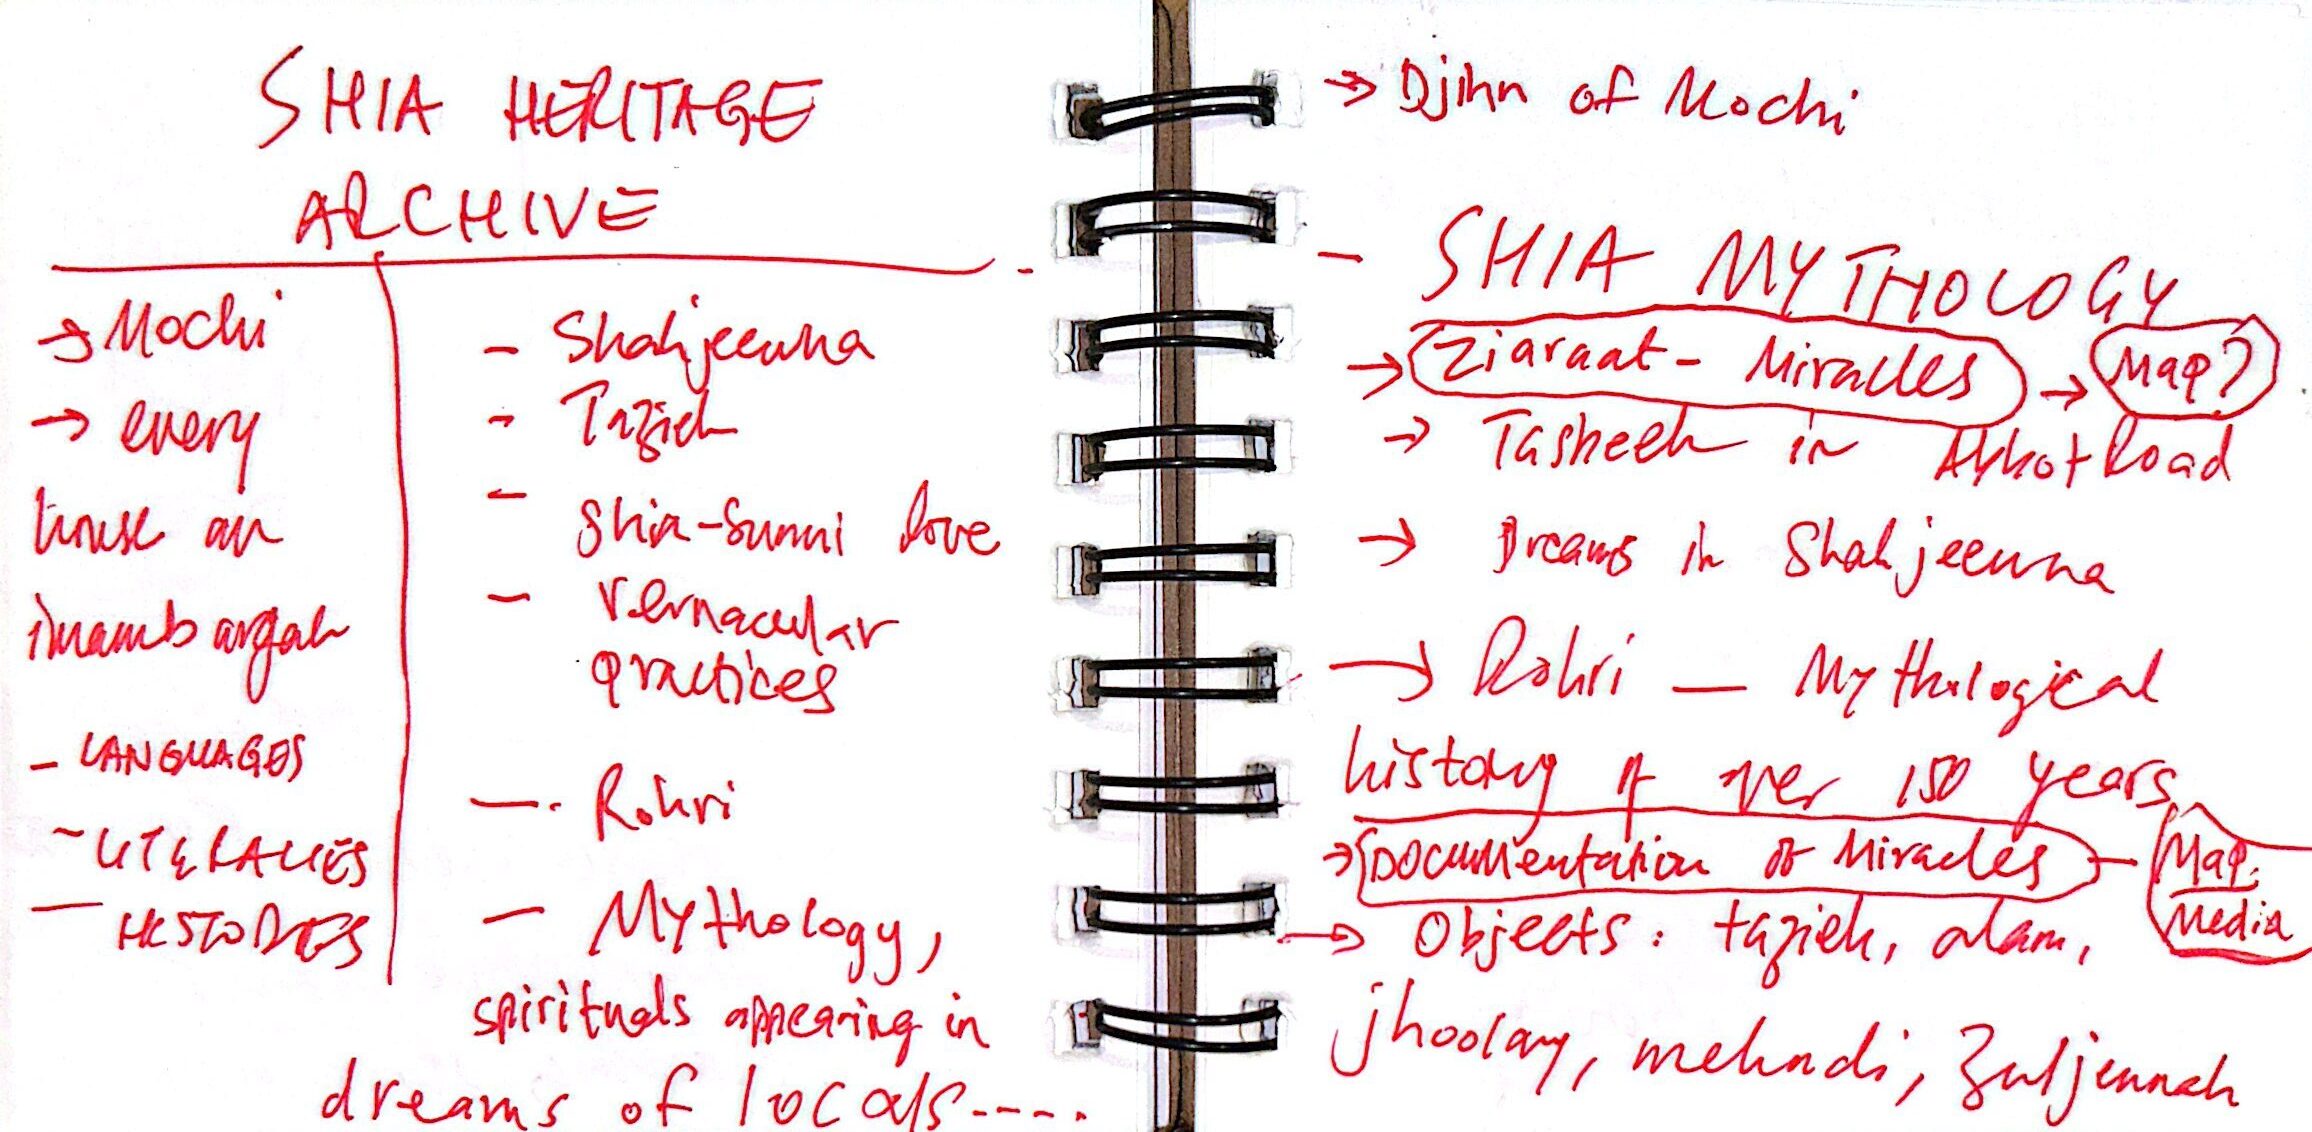 SHIA HERITAGE
ARCHIVE
→ Mochi
→ every
house an
imambargah
- LANGUAGES
- LITERACIES
- HISTORIES
- Shahjeewna
- Tazieh
- Shia-Sunni love
- vernacular
practices
- Rohri
- Mythology,
spirituals appearing in
dreams of locals----.
→ Djinn of Mochi
- SHIA MYTHOLOGY
→ Ziaraat - Miracles → Map?
→ Tasbeeh in Abbot Road
→ Dreams in Shahjeewna
→ Rohri — Mythological
history of over 150 years
→ Documentation of Miracles — Map.
Media
→ Objects: tazieh, alam,
jhoolay, mehndi, Zuljennah